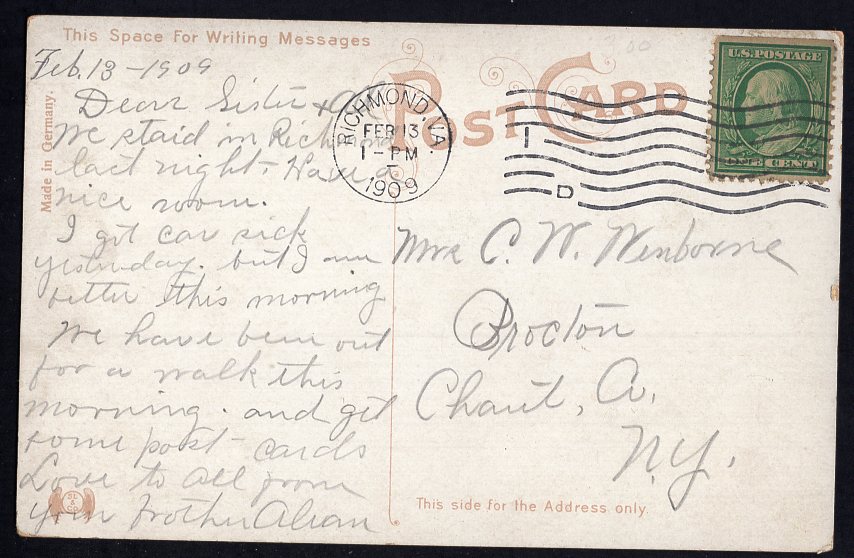 This Space For Writing Messages
POST CARD
U.S. POSTAGE
ONE CENT
RICHMOND, VA.
FEB 13
1 - PM
1909
1
D
Made in Germany.
Feb. 13 - 1909
Dear Sister +
We staid in Richmond
last night. Have a
nice room.
I got car sick
yesterday. but I am
better this morning
We have been out
for a walk this
morning. and get
some post-cards
Love to all from
your brother
Mrs C. W. Winborne
Procton
Chaut, Co.
N.Y.
This side for the Address only.